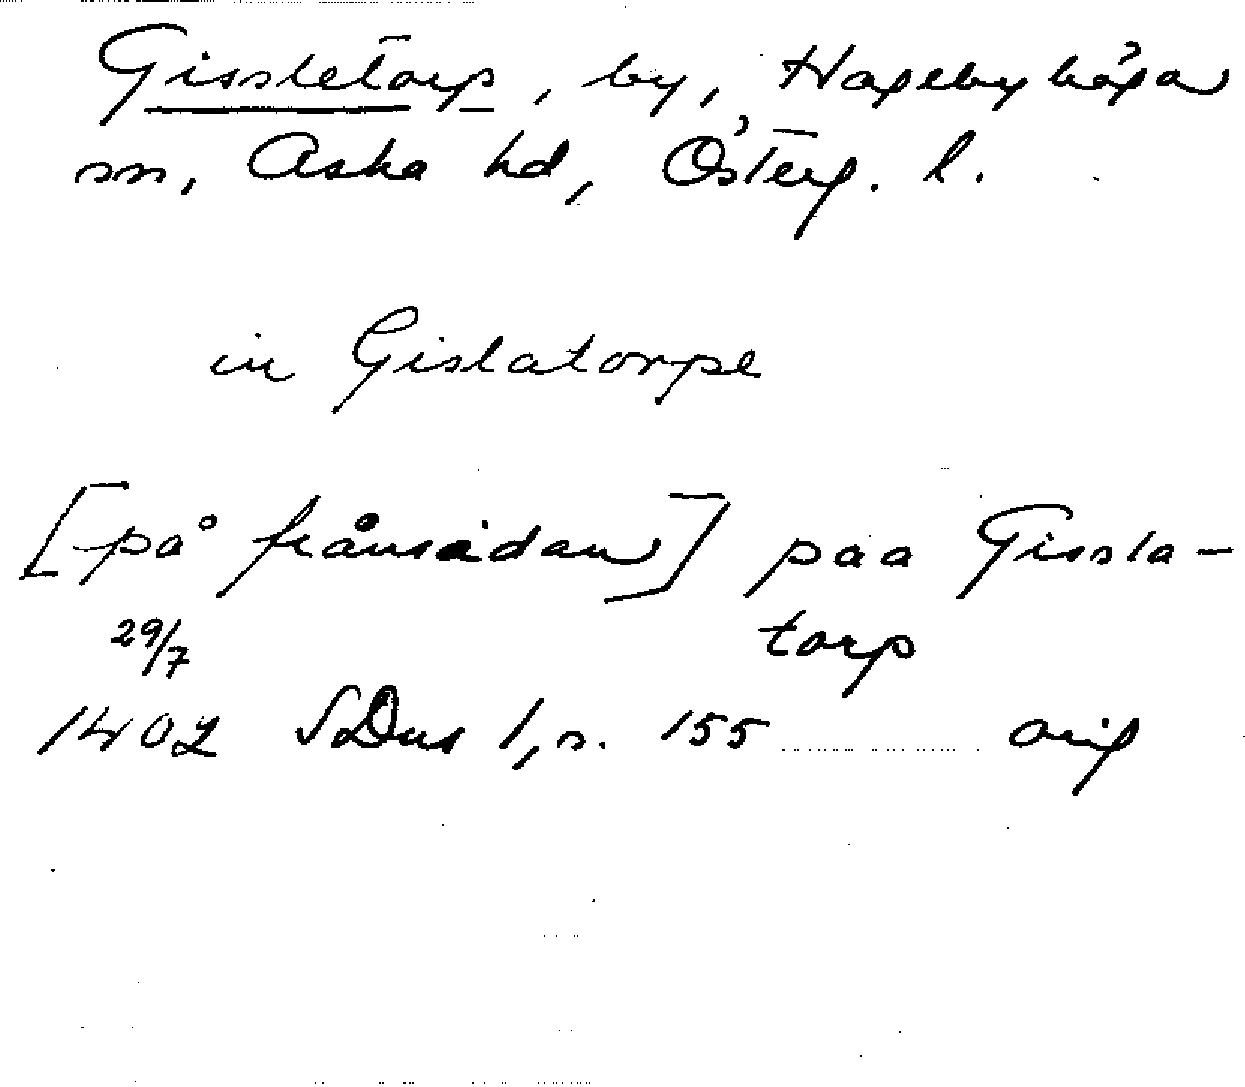 Gissletorp, by, Hagebyhöga
sn, Aska hd, Österg. l.
in Gislatorpe
[på frånsidan] paa Gissla-
torp
29/7
1402 SDns 1, s. 155 orig